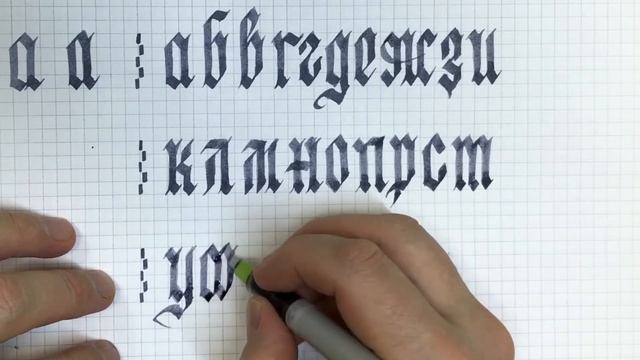 а а абвггдежзи
клмнопрст
у